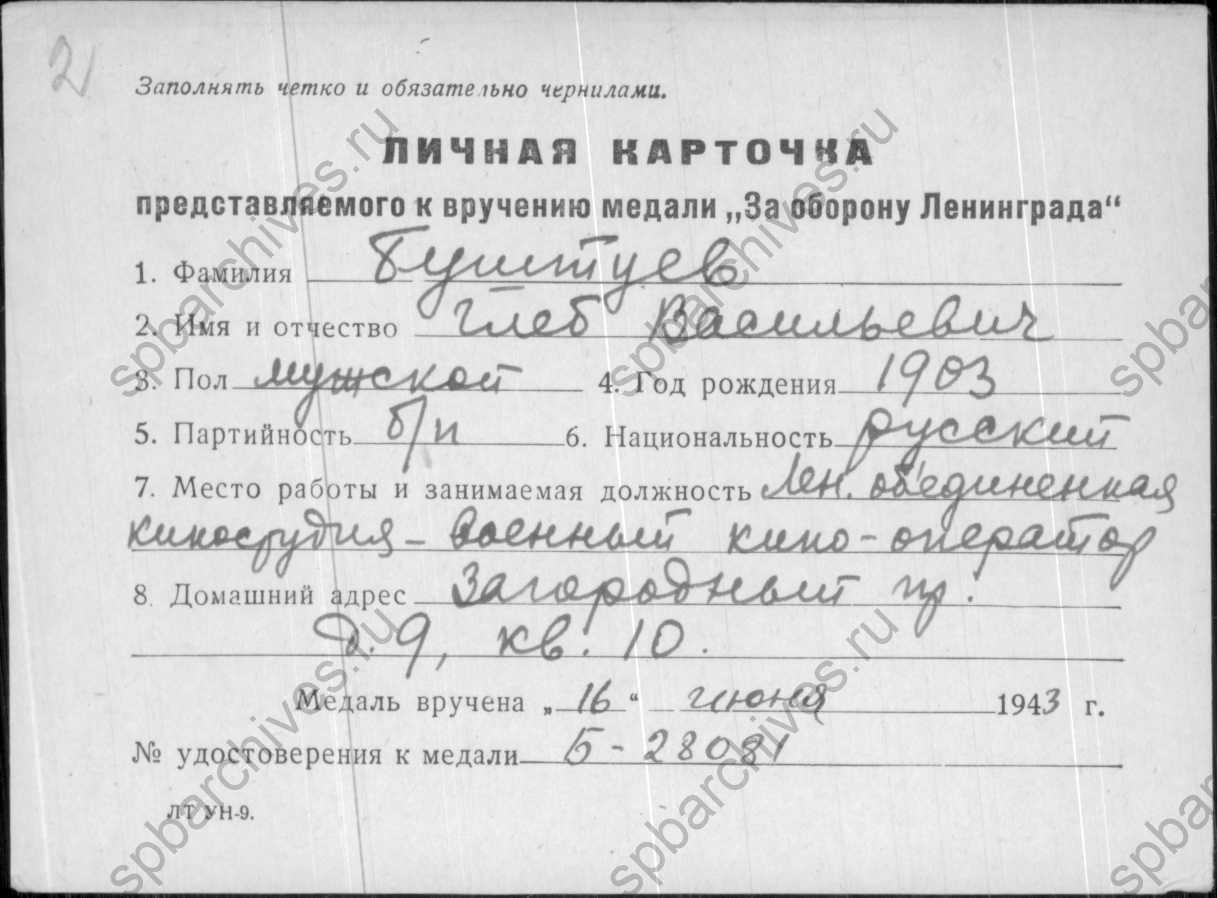 2
Заполнять четко и обязательно чернилами.
ЛИЧНАЯ КАРТОЧКА
представляемого к вручению медали „За оборону Ленинграда“
1. Фамилия Буштуев
2. Имя и отчество Глеб Васильевич
3. Пол мужской 4. Год рождения 1903
5. Партийность б/п 6. Национальность русский
7. Место работы и занимаемая должность Лен. объединенная
киностудия – военный кино-оператор
8. Домашний адрес Загородный пр.
д. 9, кв. 10.
Медаль вручена „16“ июня 1943 г.
№ удостоверения к медали Б-28081
ЛТ УН-9.
spbarchives.ru
spbarchives.ru
spbarchives.ru
spbarchives.ru